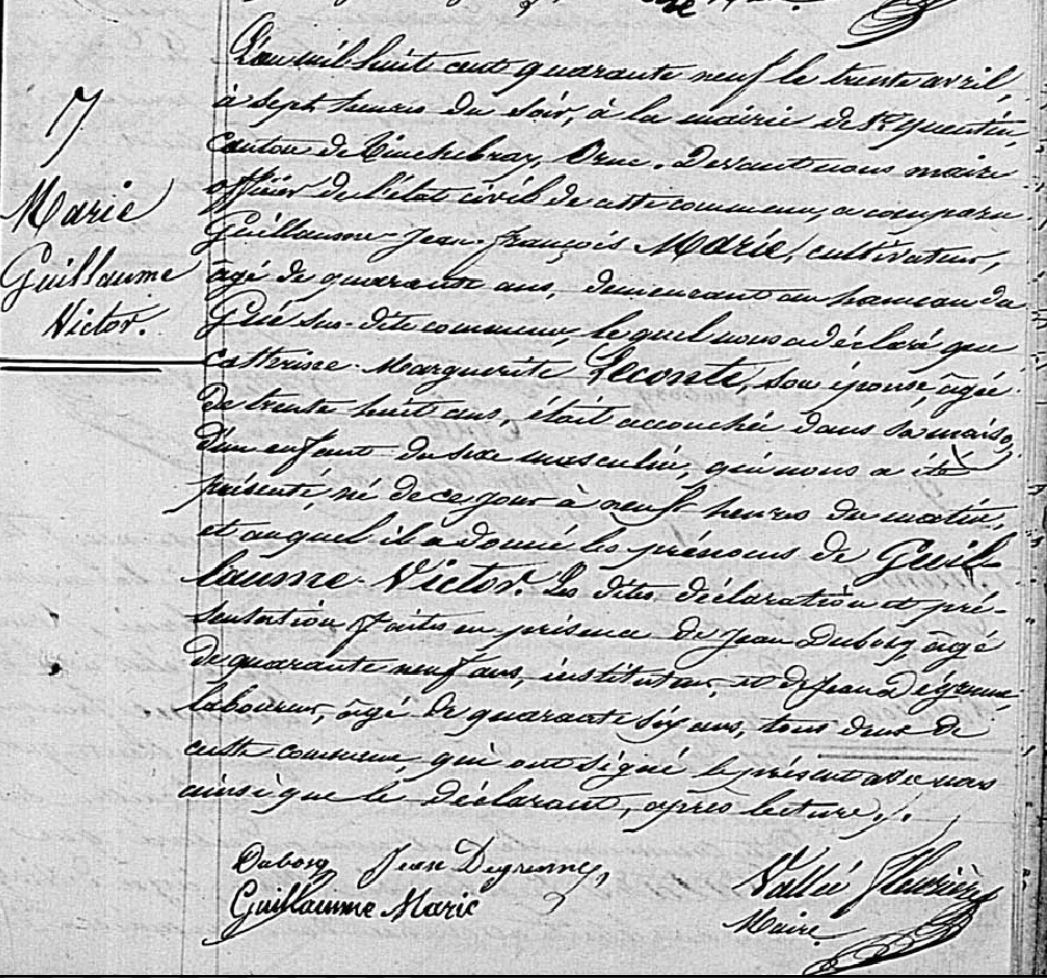 7
Marie
Guillaume
Victor.
L'an mil huit cent quarante neuf le trente avril,
à sept heures du soir, à la mairie de St. Quentin,
Canton de Tinchebray, Orne. Devant nous maire
officier de l'état civil de cette commune, a comparu
Guillaume-Jean-François Marie, cultivateur,
âgé de quarante ans, demeurant au hameau du
Gué sus-dite commune, lequel nous a déclaré que
Catherine-Marguerite Leconte, son épouse, âgée
de trente huit ans, était accouchée dans sa maison
d'un enfant du sexe masculin, qui nous a été
présenté, né de ce jour à neuf heures du matin,
et auquel il a donné les prénoms de Guil-
laume-Victor. Les dites déclaration et pré-
sentation faites en présence de Jean Dubosq, âgé
de quarante neuf ans, instituteur, et de Jean
laboureur, âgé de quarante six ans, tous deux de
cette commune, qui ont signé le présent avec nous
ainsi que le déclarant, après lecture./.
Dubosq Jean
Guillaume Marie
Vallée
Maire